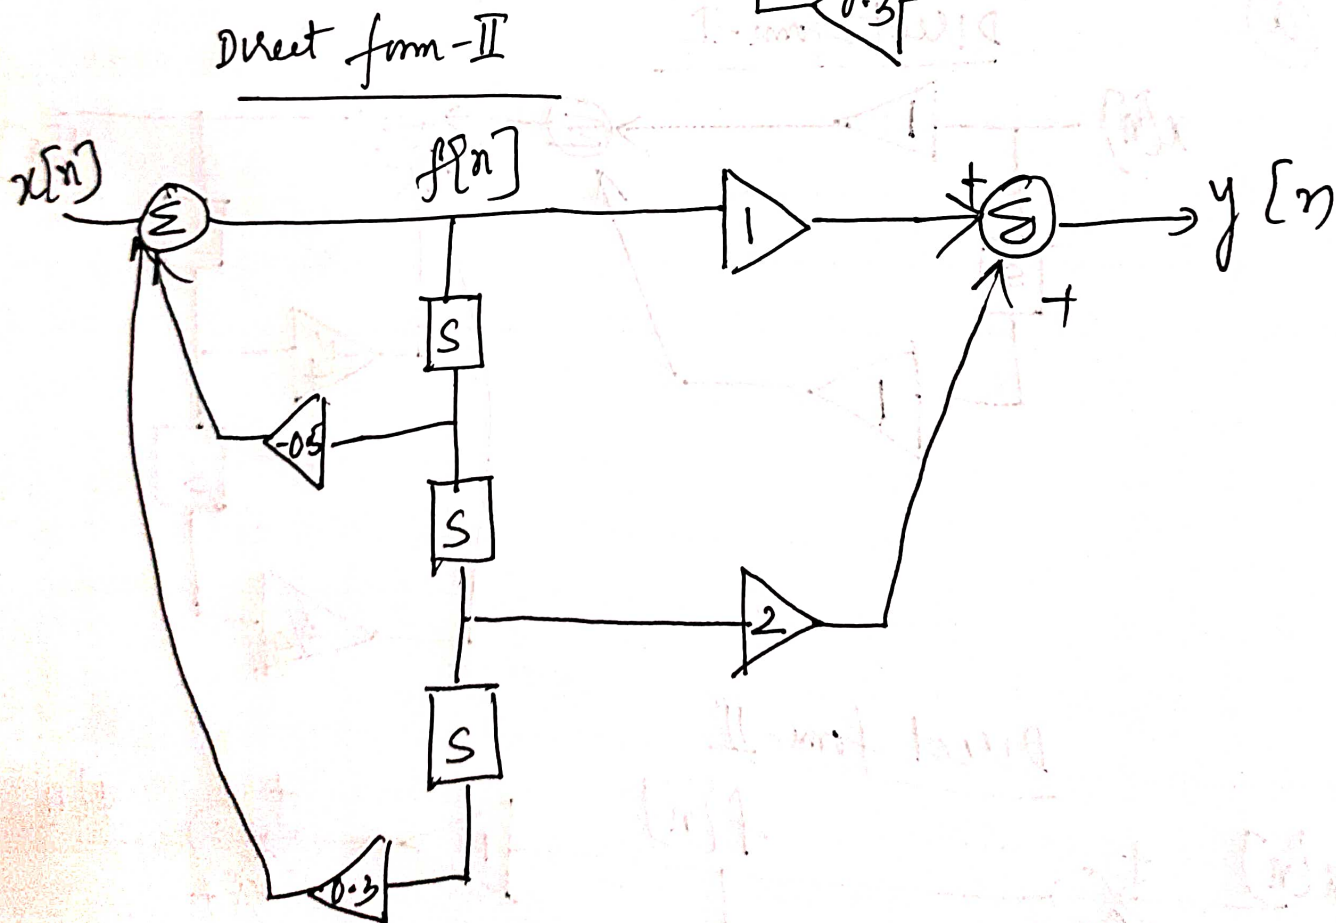 0.3
Direct form-II
x[n]
f[n]
Σ
1
+
Σ
y[n
+
S
-0.5
S
2
S
0.3